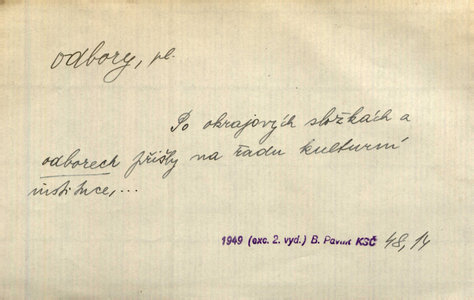 odbory, pl.
Po okrajových složkách a
odborech přišly na řadu kulturní
instituce,...
1949 (exc. 2. vyd.) B. Pavlík KSČ 48, 14